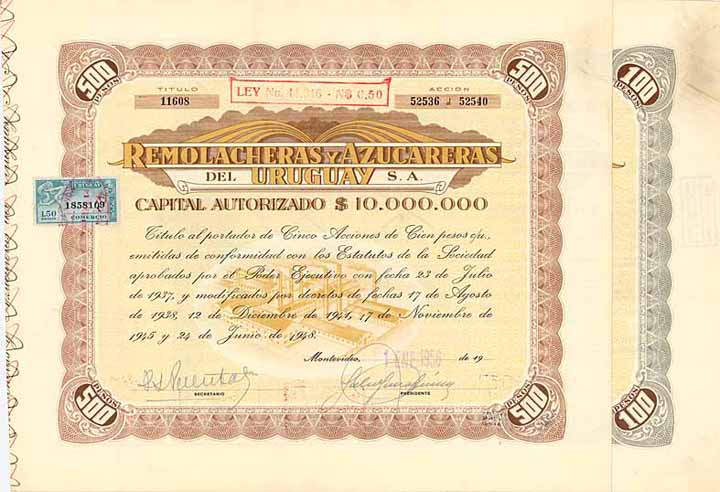 500 PESOS
500 PESOS
100 PESOS
TITULO
11608
LEY No. 14.316 - N$ 0.50
ACCION
52536 á 52540
REMOLACHERAS Y AZUCARERAS
DEL URUGUAY S.A.
CAPITAL AUTORIZADO $ 10.000.000
URUGUAY
1.50
1858109
COMERCIO
Titulo al portador de Cinco Acciones de Cien pesos c/u.,
emitidas de conformidad con los Estatutos de la Sociedad
aprobados por el Poder Ejecutivo con fecha 23 de Julio
de 1937, y modificados por decretos de fechas 17 de Agosto
de 1938, 12 de Diciembre de 1941, 17 de Noviembre de
1945 y 24 de Junio de 1948.
Montevideo, 1 ENE 1956 de 19
SECRETARIO
PRESIDENTE
500 PESOS
500 PESOS
100 PESOS